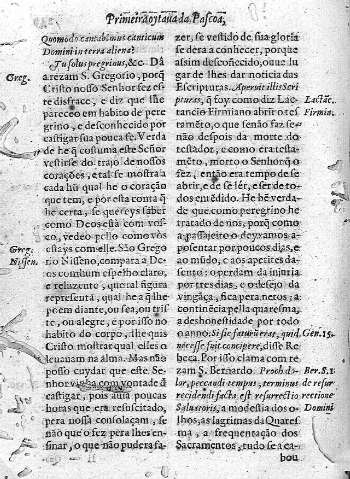 Primeira oytaua da Pascoa,
Quomodo cantabimus canticum
Domini in terra aliena?
Tu solus peregrinus, &c. Dà
Greg.
a rezam S. Gregorio, porq̃
Cristo nosso Senhor fez es
te disfrace, e diz que lhe
pareceo em habito de pere
grino, e desconhecido por
castigar sua pouca fè. Verda
de he q̃ costuma este Senhor
vestirse do trajo de nossos
corações, e tal se mostra a
cada hũ qual he o coração
que tem, e por esta conta q̃
he certa, se quereys saber
como Deos està com vos-
co, vedeo pello como vòs
estays com elle. São Grego
Greg.
Nissen.
rio Nisseno, compara a De
os com hum espelho claro,
e reluzente, que tal figura
representa, qual he a q̃ lhe
poem diante, ou sea, ou tris
te, ou alegre, e por isso no
habito do corpo, lhe quis
Cristo mostrar qual elles o
leuauam na alma. Mas não
posso cuydar que este Se-
nhor vinha com vontade d̃
castigar, pois auia poucas
horas que era resuscitado,
pera nossa consolaçam, se
não que o fez pera lhes en-
sinar, o que não pudera fa-
zer, se vestido de sua gloria
se dera a conhecer, porque
assim desconhecido, ouue lu
gar de lhes dar noticia das
Escripturas. Aperuit illis Scri
pturas, q̃ foy como diz Lac
Lactãc.
Firmia.
tancio Firmiano abrir o tes
tamẽto, o que senão faz se-
não depois da morte do
testador, e como era testa-
mẽto, morto o Senhor q̃ o
fez, entaõ era tempo de se
abrir, e de se lèr, e ser de to-
dos entẽdido. He bẽ verda-
de que como peregrino he
tratado de nòs, porq̃ como
a passajeiro o deyxamos a-
posentar por poucos dias, e
ao mũdo, e aos apetites da-
sento: o perdam da injuria
por tres dias, e o desejo da
vingãça, fica pera netos; a
continẽcia pella quaresma,
a deshonestidade por todo
o anno. Si sic futurũ erat, quid
Gen. 15.
necesse fuit concipere, disse Re
beca. Por isso clama com re
zam S. Bernardo. Proch do-
Ber. S. 1.
lor, peccandi tempus, terminus
de resur
recidendi facta est resurrectio
rectione
Saluatoris, a modestia dos o-
Domini
lhos, as lagrimas da Quares
ma, a frequentação dos
Sacramentos, tudo se aca-
bou